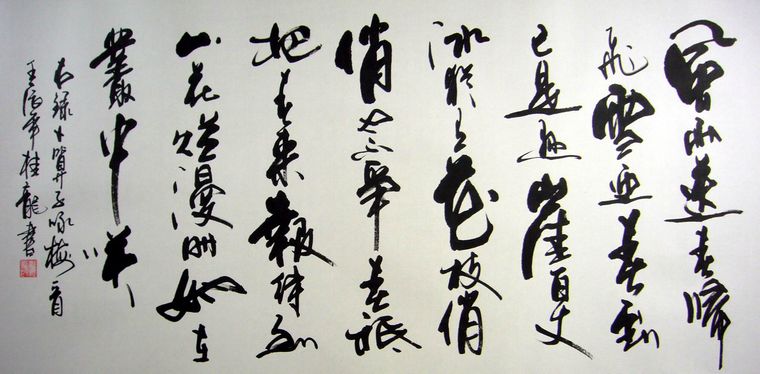 風雨送春歸
飛雪迎春到
已是懸崖百丈
冰猶有花枝俏
俏也不爭春祗
把春來報待到
山花爛漫時她在
叢中笑
錄卜算子咏梅一首
年桂龍書